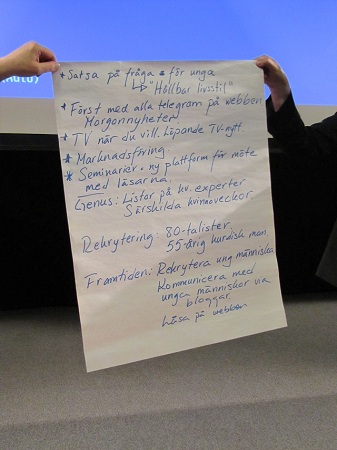 Auto)
* Satsa på fråga * för unga
↳ "Hållbar livsstil"
* Först med alla telegram på webben
Morgonnyheter
* TV när du vill. Löpande TV-nytt
* Marknadsföring.
* Seminarier. ny plattform för möte
med läsarna
Genus: Listor på kv. experter
Särskilda kvinnoveckor
Rekrytering: 80-talister.
55-årig kurdisk man.
Framtiden: Rekrytera ung människa
Kommunicera med
unga människor via
bloggar.
Läsa på webben